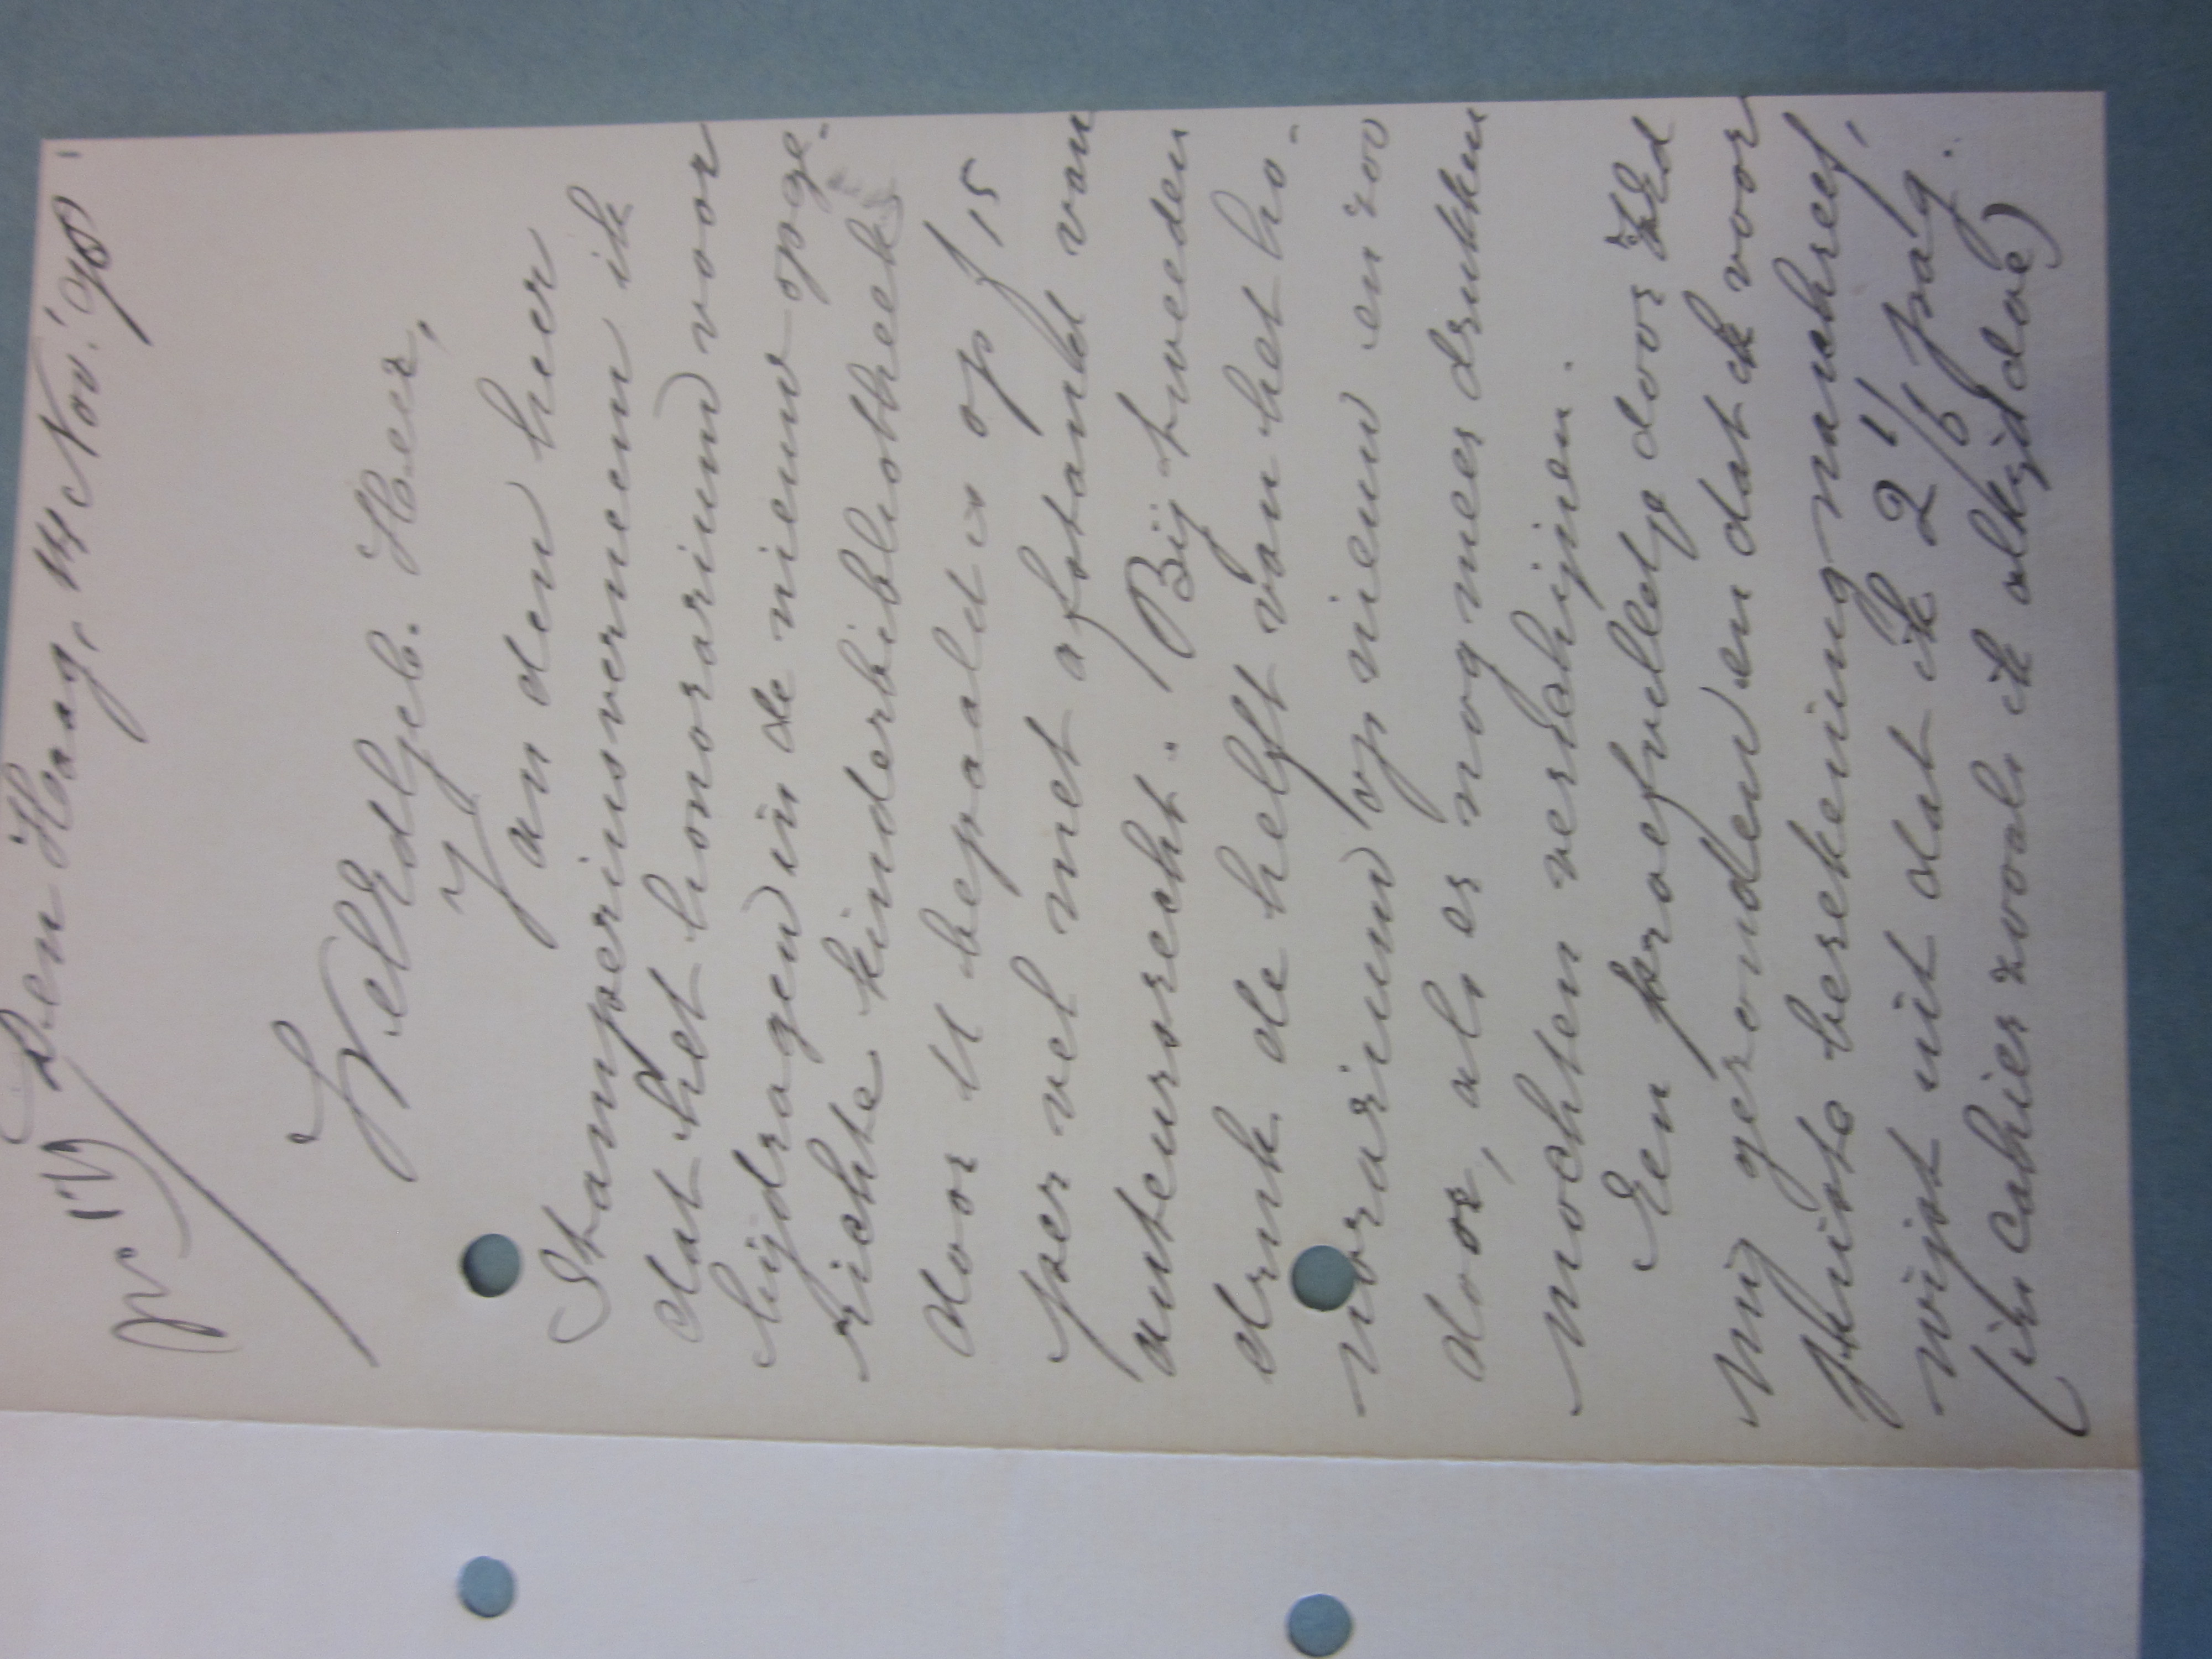 Den Haag, 14 Nov! 98
No 179
WelEdlgeb. Heer,
Van den heer
Stamperius verneem ik
dat het honorarium voor
bijdragen in de nieuw opge-
richte kinderbibliotheek
door U bepaald is op f 15
per vel met afstand van
auteursrecht. Bij tweeden
druk de helft van het ho-
norarium op nieuw en zoo
door, als er nog meer drukken
mochten verschijnen.
Een proefvelletje door ZEd
mij gezonden en dat ik voor
juiste berekening naschreef,
wijst uit dat ik 2 1/6 pag.
(in cahier zooals ik altijd doe)